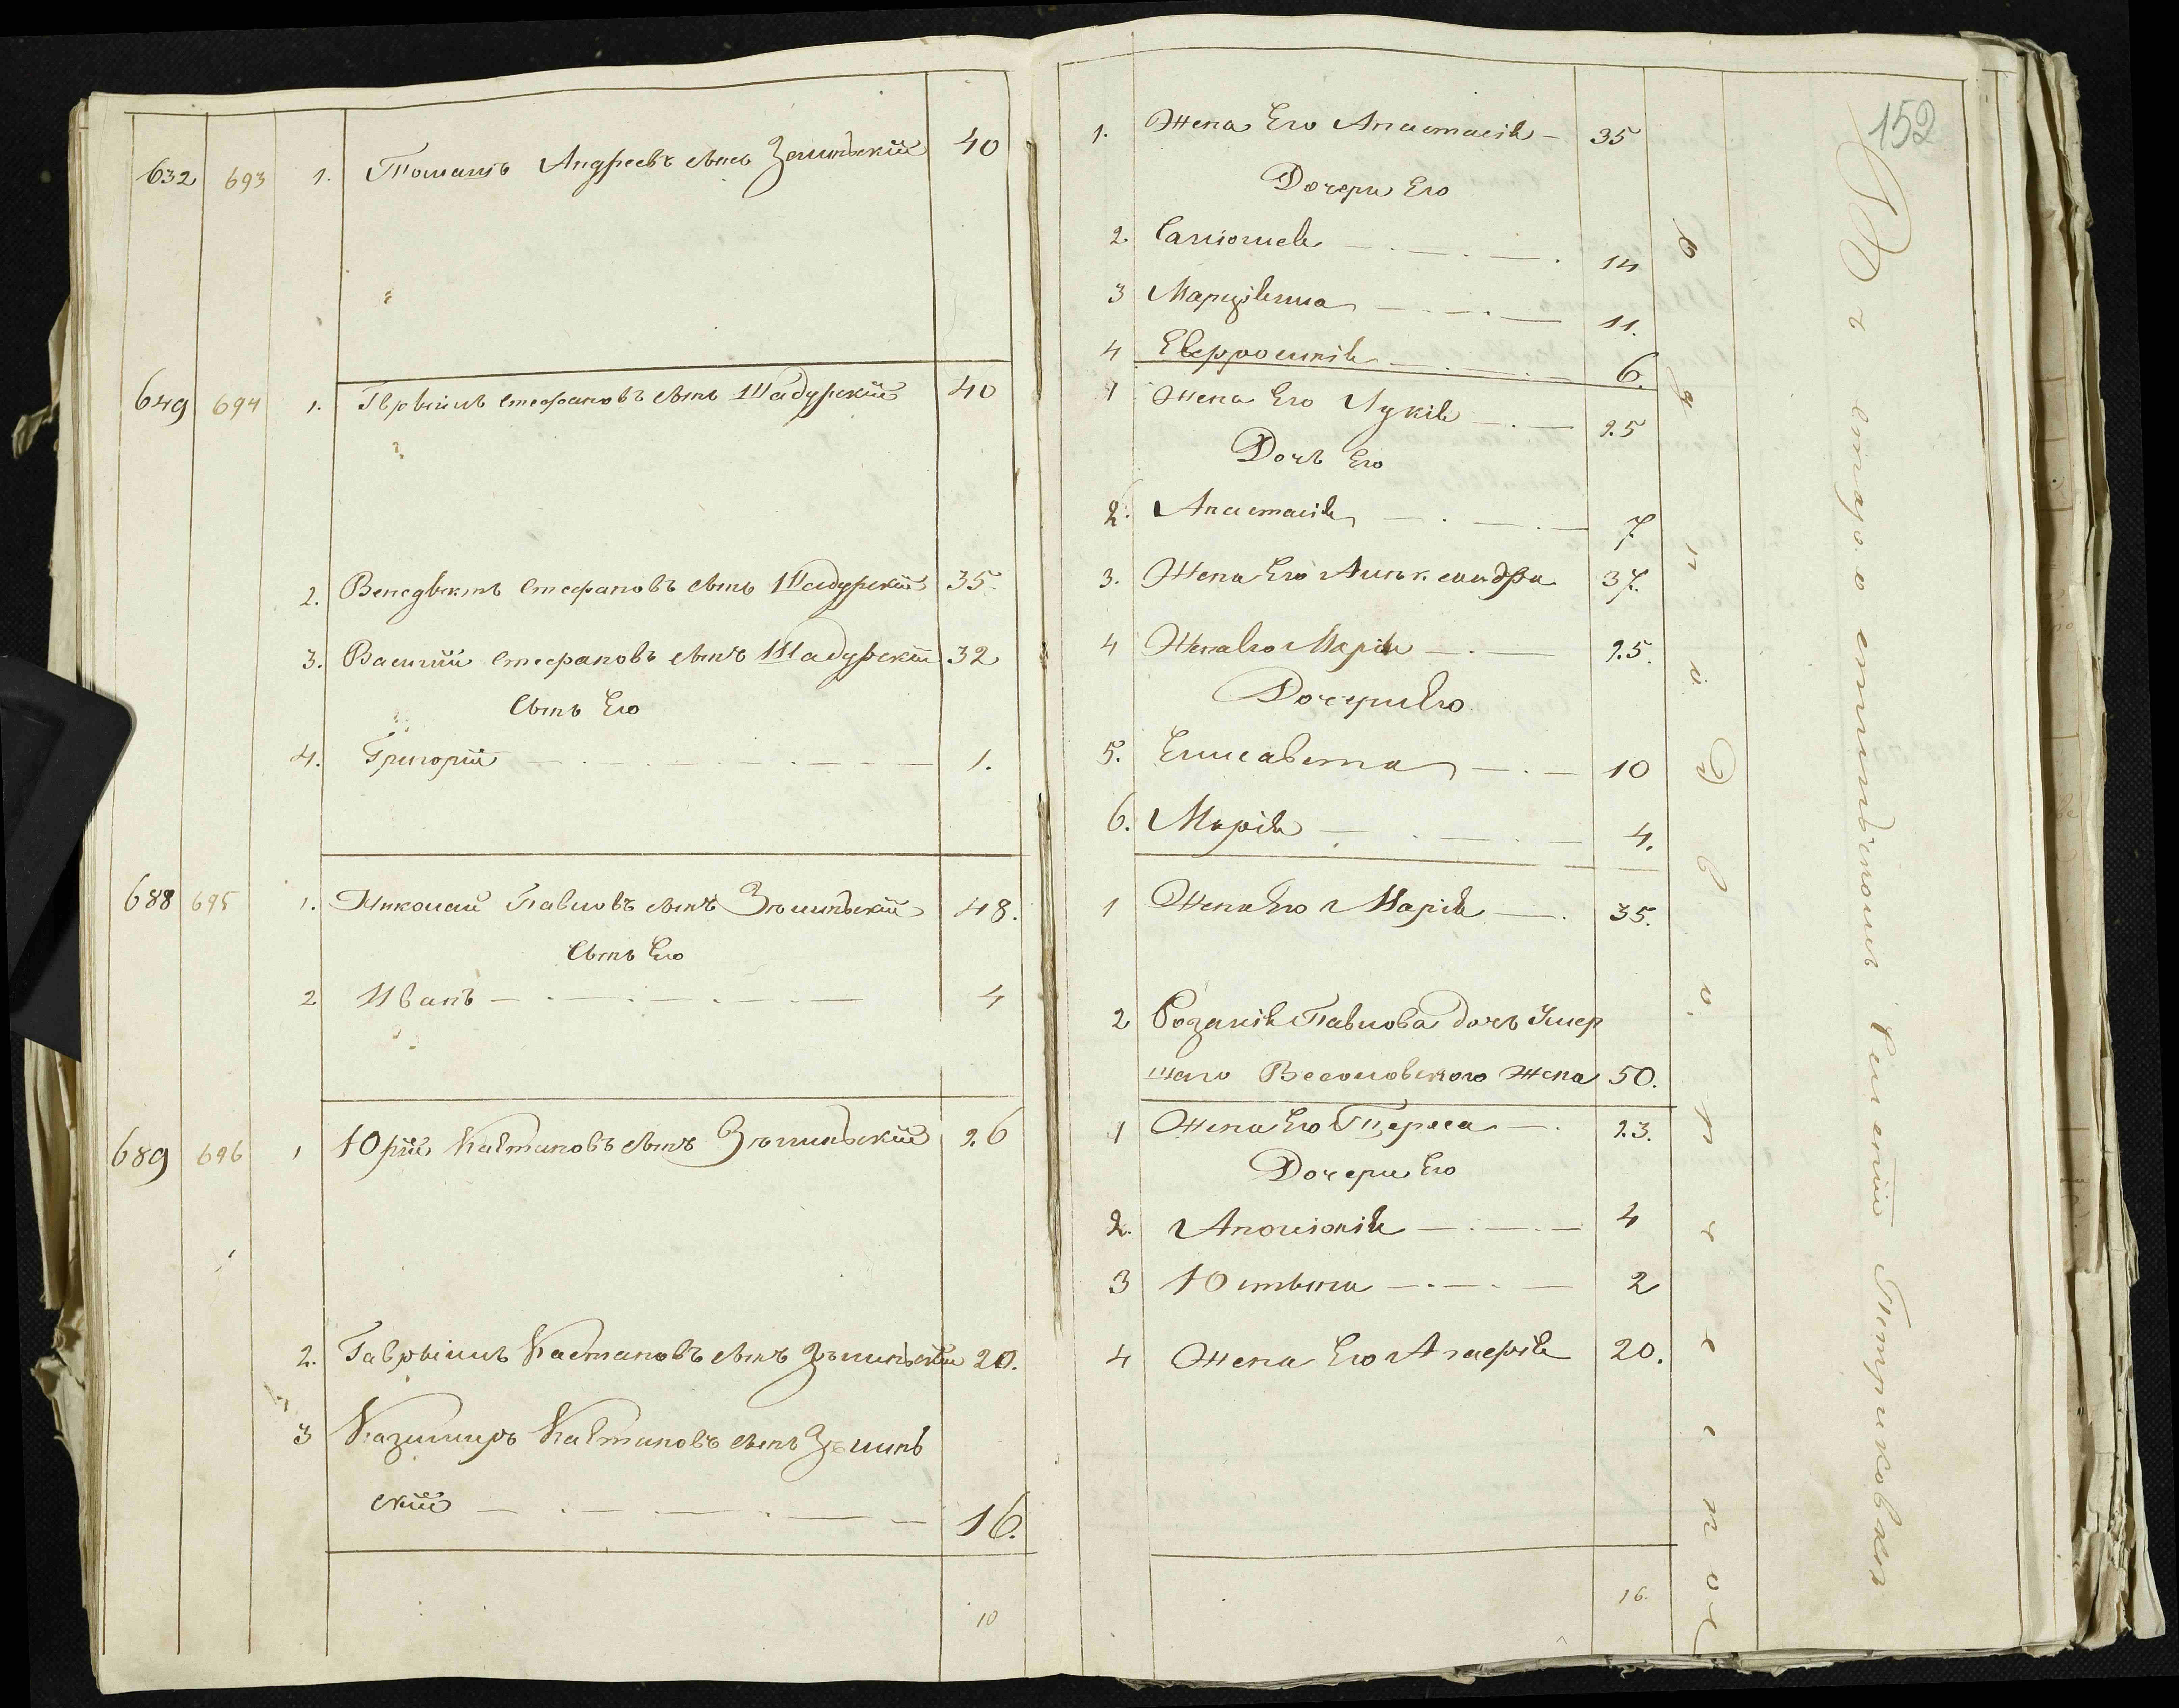 632 693 1. Томашъ Андреевъ сынъ Зелинскій 40
649 694 1. Гервеилъ Стефановъ сынъ Шадурскій 40
2. Венедыктъ Стефановъ сынъ Шадурскій 35
3. Василій Стефановъ сынъ Шадурскій 32
Сынъ Его
4. Григорій 1.
688 695 1. Николай Павловъ сынъ Зѣлинскій 48.
Сынъ Его
2 Иванъ 4
689 696 1 Юрій Каетановъ сынъ Зѣлинскій 26
2. Гаврыилъ Каетановъ сынъ Зѣлинскій 20.
3 Казимиръ Каетановъ сынъ Зѣлинь
скій 16.
10
152
1. Жена Его Анастасія 35
Дочери Его
2. Саломея 14
3 Марціяна 11.
4 Евфросинія 6.
1 Жена Его Лукія 25
Дочь Его
2. Анастасія 7
3. Жена Его Александра 37.
4 Жена Его Марія 25.
Дочери Его
5. Елисавета 10
6. Марія 4.
1 Жена Его Марія 35.
2 Розалія Павлова дочь Умер
шаго Весоловского Жена 50.
1 Жена Его Тереса 23.
Дочери Его
2. Аполонія 4
3 Юстына 2
4 Жена Его Агаерія 20.
16.